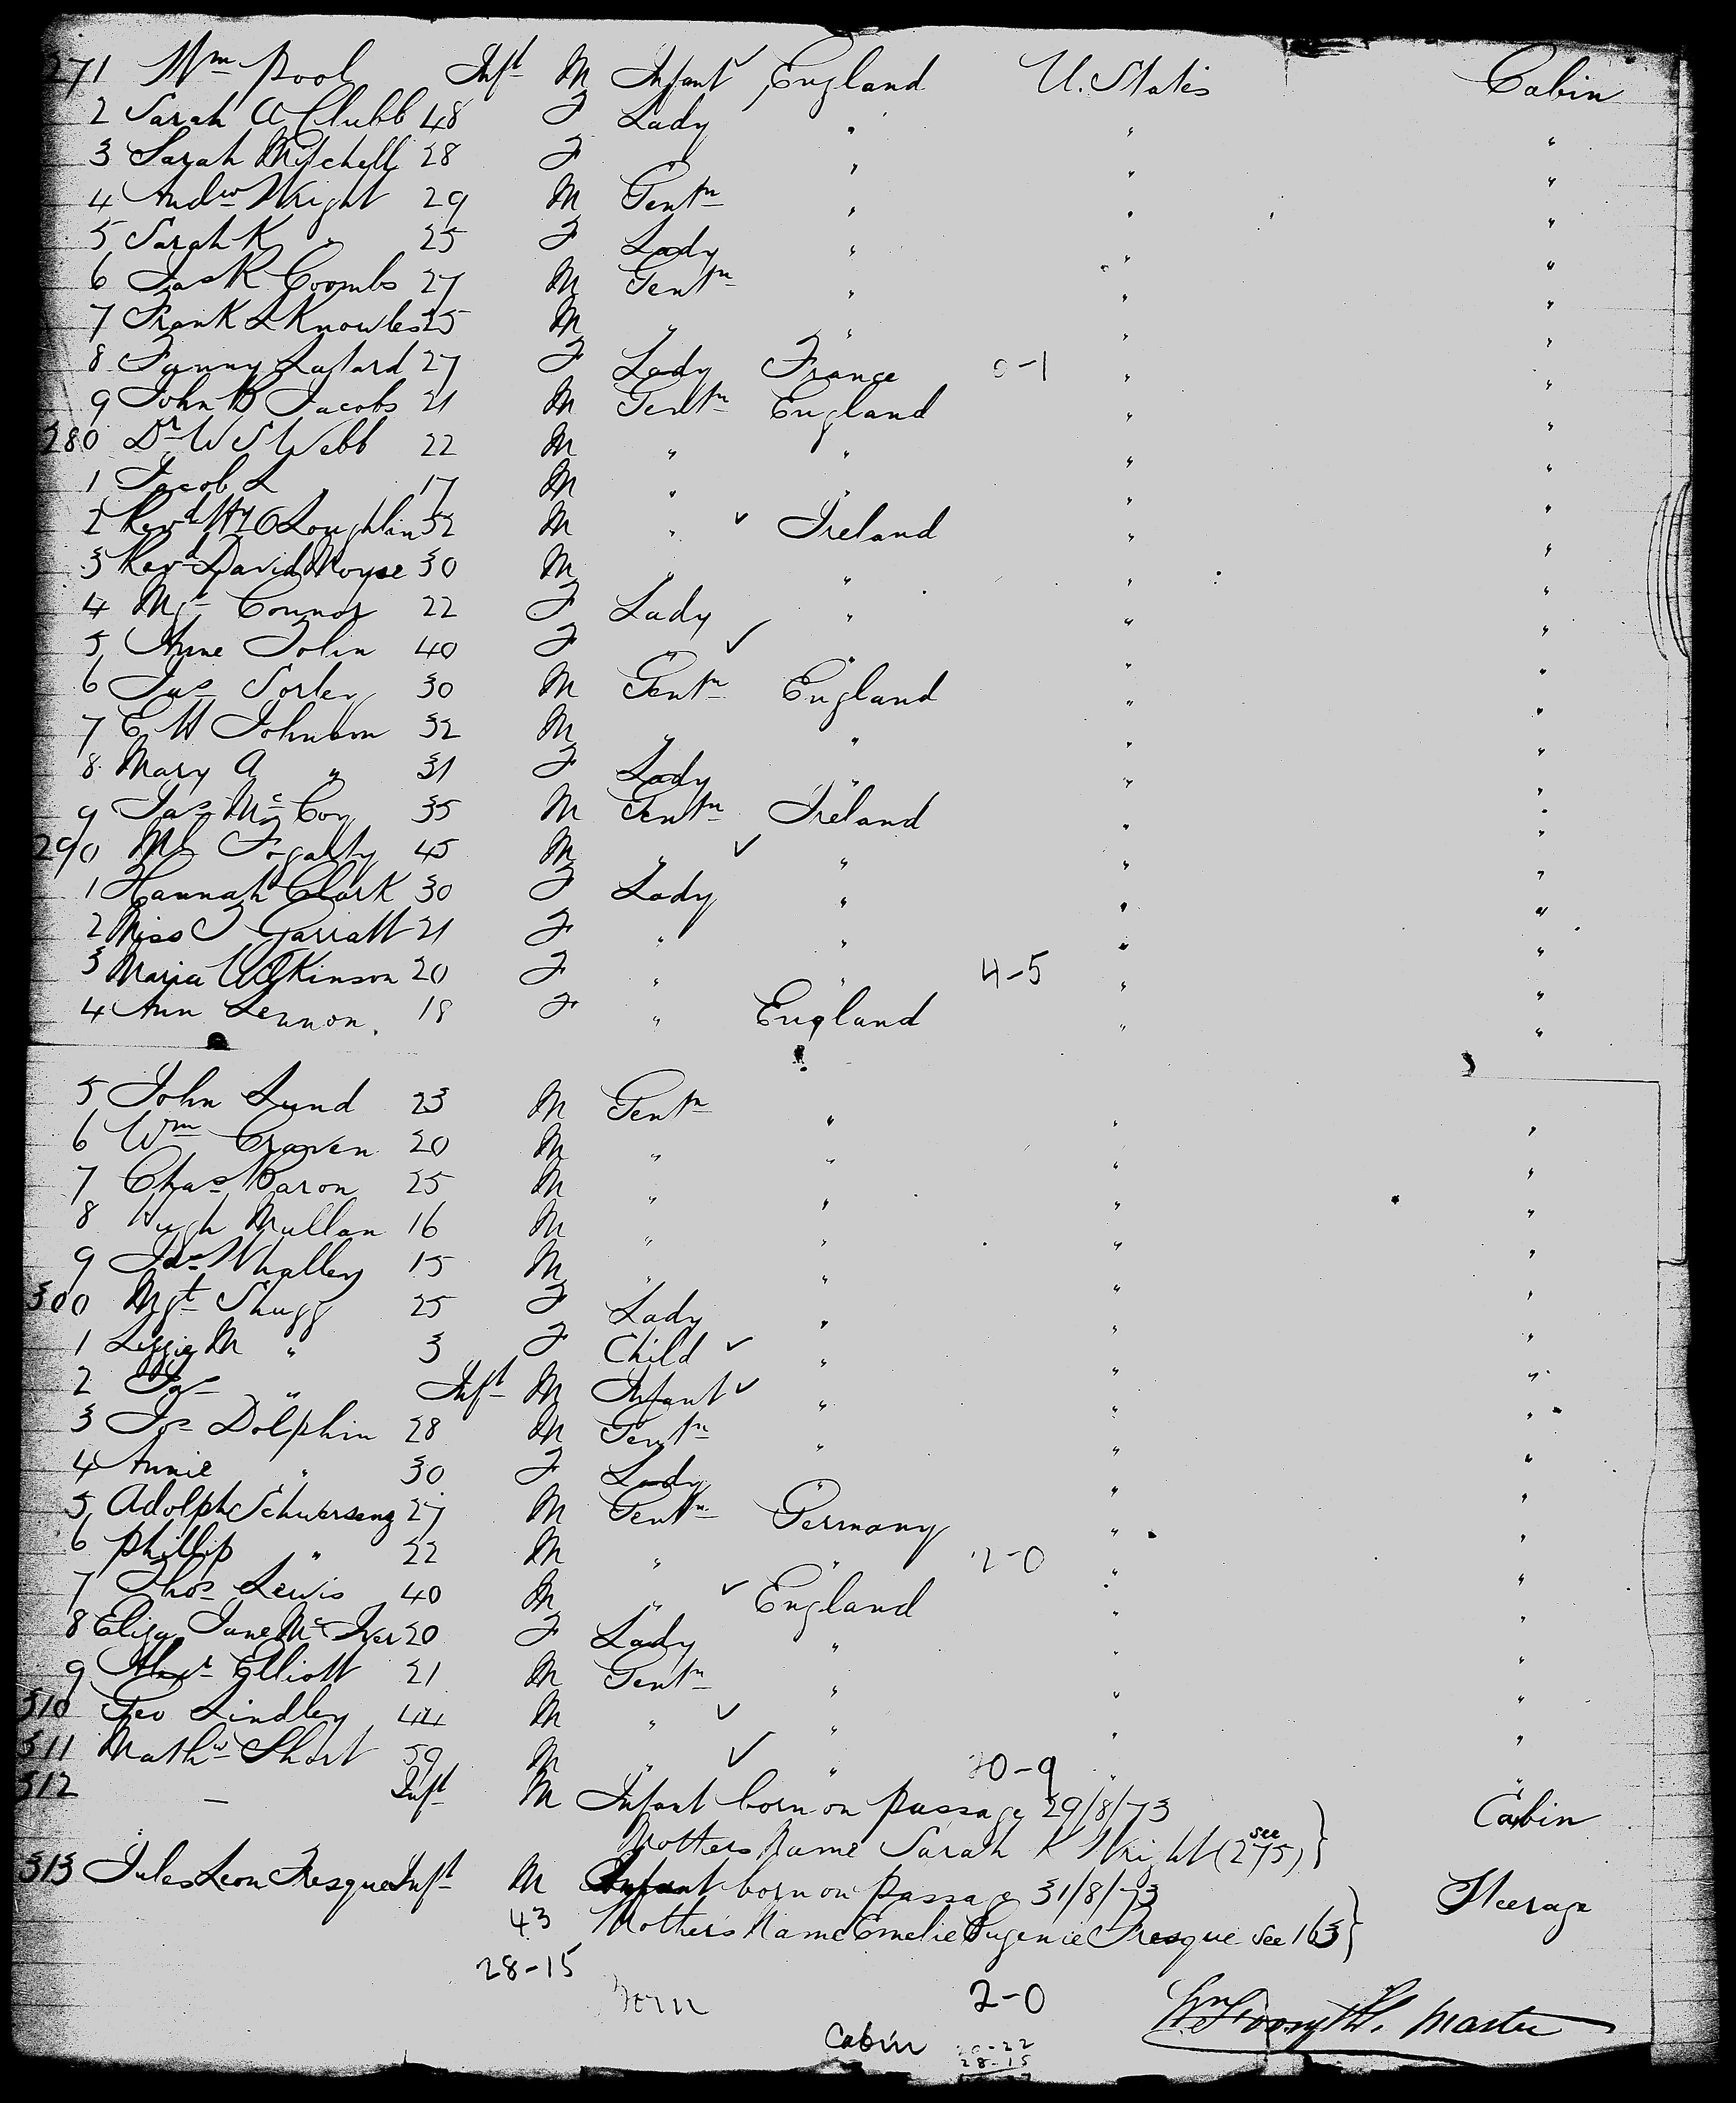 271 Wm Pool Inft M Infant ✓ England U. States Cabin
2 Sarah A Clubb 48 F Lady " " "
3 Sarah Mitchell 28 F " " "
4 Andw Wright 29 M Gentn " " "
5 Sarah K " 25 F Lady " " "
6 Jas R Coombs 27 M Gentn " " "
7 Frank L Knowles 25 M " " " "
8 Fanny Lastard 27 F Lady France 0-1 " "
9 John B Jacobs 21 M Gentn England " "
280 Dr W S Webb 22 M " " " "
1 Jacob L " 17 M " " " "
2 Revd Hy O Loughlin 32 M " ✓ Ireland " "
3 Revd David Moyse 30 M " " " "
4 Mgt Connor 22 F Lady " " "
5 Anne Tolin 40 F " ✓ " " "
6 Jas Sorley 30 M Gentn England " "
7 E W Johnson 32 M " " " "
8 Mary A " 31 F Lady " " "
9 Jas McCoy 35 M Gentn Ireland " "
290 Ml Fogatty 45 M " ✓ " " "
1 Hannah Clark 30 F Lady " " "
2 Miss J Garratt 21 F " " " "
3 Maria Wilkinson 20 F " " 4-5 " "
4 Ann Lennon 18 F " England " "
5 John Lund 23 M Gentn " " "
6 Wm Craven 20 M " " " "
7 Chas Baron 25 M " " " "
8 Hugh Mullan 16 M " " " "
9 Jas Whalley 15 M " " " "
300 Mgt Shugg 25 F Lady " " "
1 Lizzie M " 3 F Child ✓ " " "
2 Jas " Inft M Infant ✓ " " "
3 Jos Dolphin 28 M Gentn " " "
4 Annie " 30 F Lady " " "
5 Adolph Schwerseng 27 M Gentn Germany " "
6 Phillip " 22 M " " 2-0 " "
7 Thos Lewis 40 M " ✓ England " "
8 Eliza Jane McIver 20 F Lady " " "
9 Alexr Elliott 21 M Gentn " " "
310 Geo Lindley 44 M " ✓ " " "
311 Mathw Short 59 M " ✓ " 20-9 " "
312 — Inft M Infant born on passage 29/8/73 Cabin
Mothers Name Sarah K Wright (see 275)
313 Jules Leon Fresque Inft M Infant born on passage 31/8/73 Steerage
43 Mother's Name Emelie Eugenie Fresque see 163
28-15
2-0
Wm Forsyth. Master
Cabin 20-22
28-15